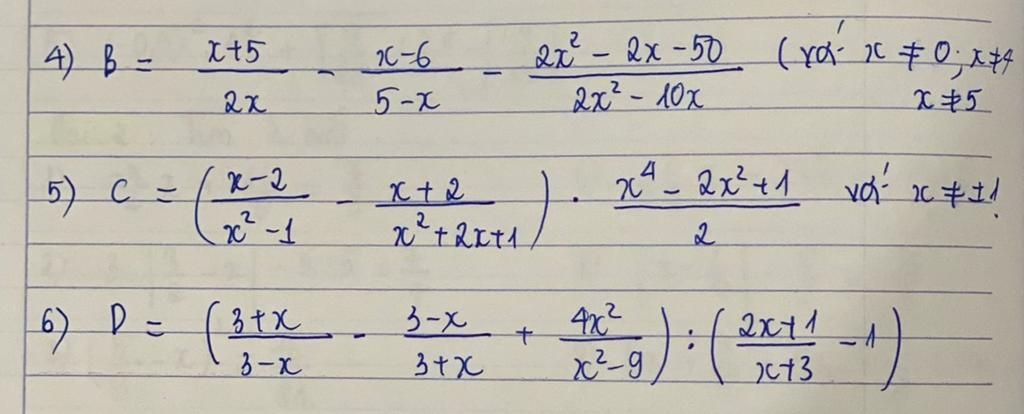 4) B = (x+5)/(2x) - (x-6)/(5-x) - (2x² - 2x - 50)/(2x² - 10x) (với x ≠ 0; x ≠ 4
x ≠ 5
5) C = ((x-2)/(x² - 1) - (x+2)/(x² + 2x + 1)) · (x⁴ - 2x² + 1)/2 với x ≠ ±1.
6) D = ((3+x)/(3-x) - (3-x)/(3+x) + 4x²/(x² - 9)) : ((2x+1)/(x+3) - 1)